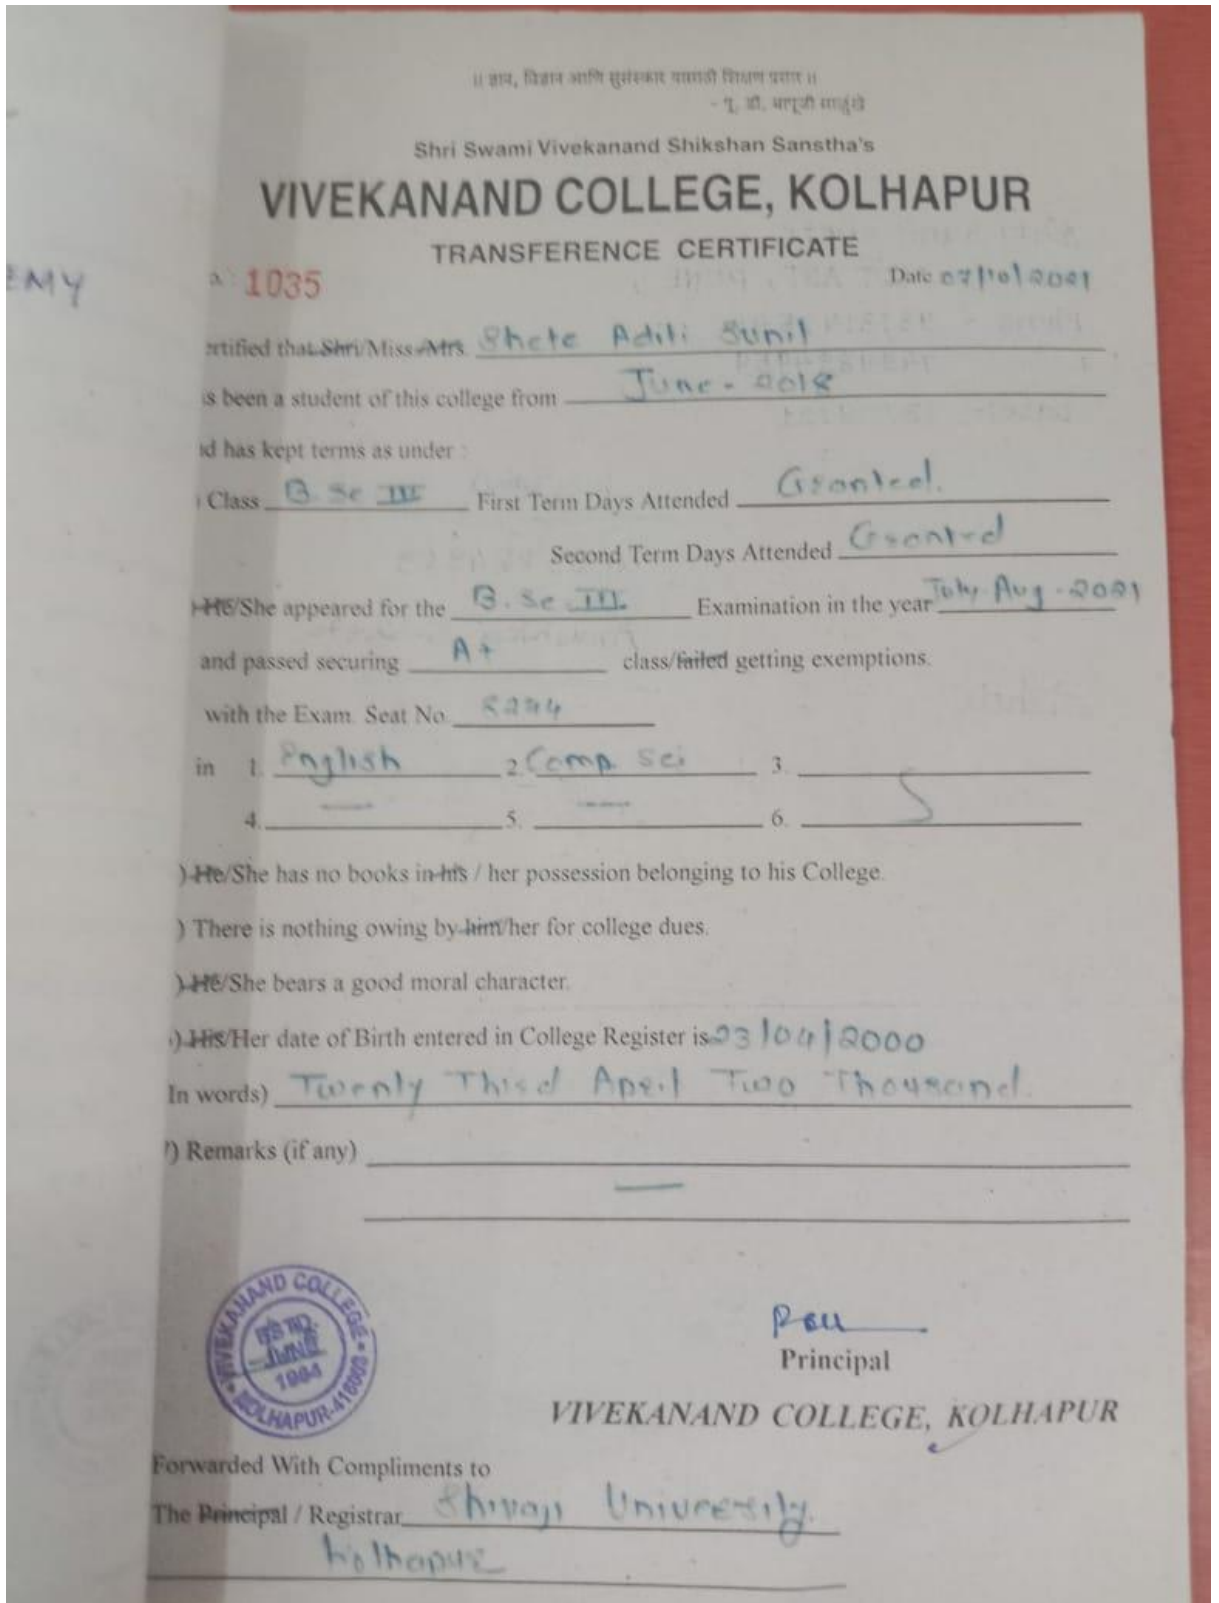 ॥ ज्ञान, विज्ञान आणि सुसंस्कार यासाठी शिक्षण प्रसार ॥
- डॉ. बापूजी साळुंखे
Shri Swami Vivekanand Shikshan Sanstha's
VIVEKANAND COLLEGE, KOLHAPUR
TRANSFERENCE CERTIFICATE
EMY
1035 Date 07/10/2021
ertified that Shri/Miss/Mrs. Shete Aditi Sunil
s been a student of this college from June - 2018
nd has kept terms as under :
Class B.Sc III First Term Days Attended Granted.
Second Term Days Attended Granted
) He/She appeared for the B.Sc III. Examination in the year July-Aug-2021
and passed securing A+ class/failed getting exemptions.
with the Exam. Seat No.
in 1. English 2. Comp. Sci 3.
4. — 5. — 6.
) He/She has no books in his / her possession belonging to his College.
) There is nothing owing by him/her for college dues.
) He/She bears a good moral character.
) His/Her date of Birth entered in College Register is 23/04/2000
In words) Twenty Third April Two Thousand.
) Remarks (if any)
—
VIVEKANAND COLLEGE
ESTD.
JUNE
1964
KOLHAPUR-416003
Principal
VIVEKANAND COLLEGE, KOLHAPUR
Forwarded With Compliments to
The Principal / Registrar Shivaji University.
Kolhapur